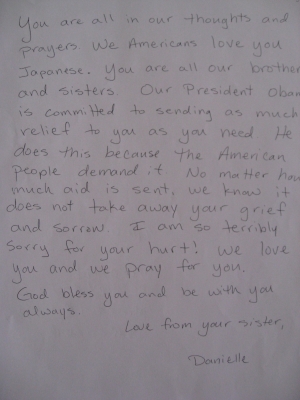 You are all in our thoughts and
prayers. We Americans love you
Japanese. You are all our brother
and sisters. Our President Obam
is committed to sending as much
relief to you as you need. He
does this because the American
people demand it. No matter how
much aid is sent, we know it
does not take away your grief
and sorrow. I am so terribly
sorry for your hurt! We love
you and we pray for you.
God bless you and be with you
always.
Love from your sister,
Danielle